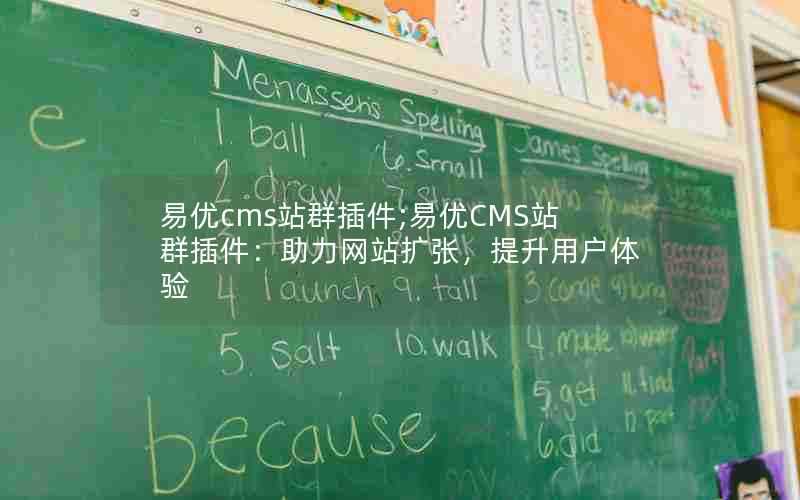 e
Menassen's Spelling
1. ball
2. draw
4. launch
5. salt
6. Small
9. tall
10. walk
James' Spelling
1. who
3. come
4. made
5. get
6. did
11. find
12. part
Party
because
my
易优cms站群插件;易优CMS站
群插件：助力网站扩张，提升用户体
验